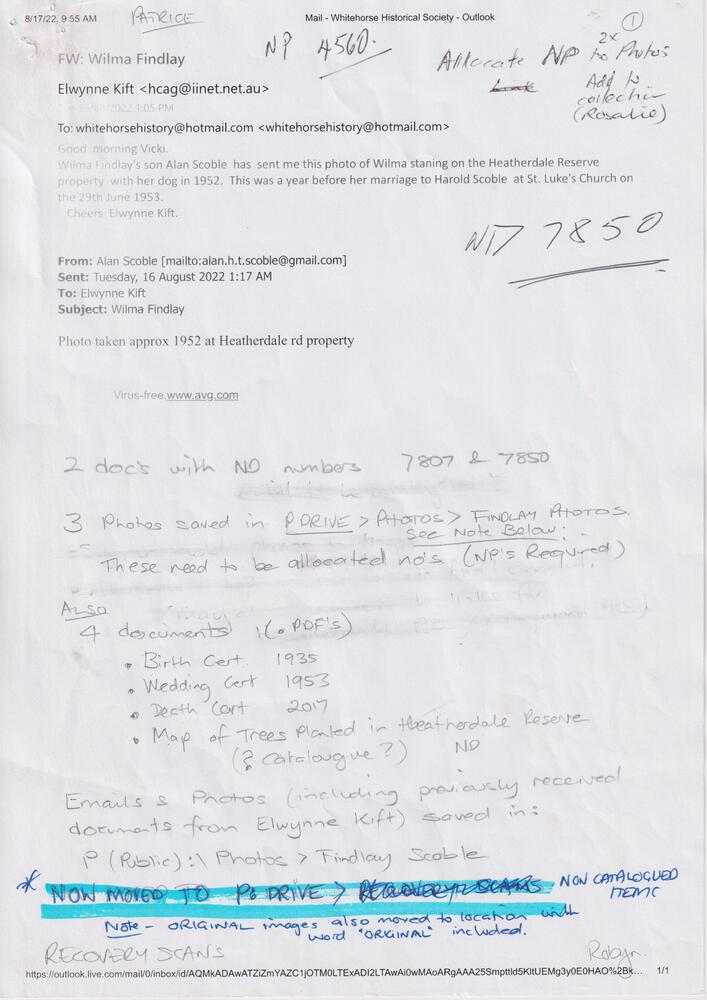 8/17/22, 9:55 AM
PATRICE
Mail - Whitehorse Historical Society - Outlook
1
NP 4560.
Allocate NP to Photos
2x
Add to
collection
(Rosalie)
FW: Wilma Findlay
Elwynne Kift <hcag@iinet.net.au>
Tue 16/08/2022 1:05 PM
To: whitehorsehistory@hotmail.com <whitehorsehistory@hotmail.com>
Good morning Vicki.
Wilma Findlay's son Alan Scoble has sent me this photo of Wilma staning on the Heatherdale Reserve
property with her dog in 1952. This was a year before her marriage to Harold Scoble at St. Luke's Church on
the 29th June 1953.
Cheers Elwynne Kift.
ND 7850
From: Alan Scoble [mailto:alan.h.t.scoble@gmail.com]
Sent: Tuesday, 16 August 2022 1:17 AM
To: Elwynne Kift
Subject: Wilma Findlay
Photo taken approx 1952 at Heatherdale rd property
Virus-free.www.avg.com
2 doc's with ND numbers 7807 & 7850
3 Photos saved in P DRIVE > PHOTOS > FINDLAY PHOTOS.
See Note Below:
These need to be allocated no's (NP's Required)
ALSO
4 documents (. PDF's)
• Birth Cert. 1935
• Wedding Cert 1953
• Death Cert 2017
• Map of Trees Planted in Heatherdale Reserve
(? Catalougue?) ND
Emails & Photos (including previously received
documents from Elwynne Kift) saved in:
P (Public):\ Photos > Findlay Scoble
* NOW MOVED TO P: DRIVE > RECOVERY SCANS NON CATALOGUED
ITEMS
Note - ORIGINAL images also moved to location with
word "ORIGINAL" included.
RECOVERY SCANS
Robyn.
https://outlook.live.com/mail/0/inbox/id/AQMkADAwATZiZmYAZC1jOTM0LTExADI2LTAwAi0wMAoARgAAA25Smpttld5KItUEMg3y0E0HAO%2Bk...
1/1